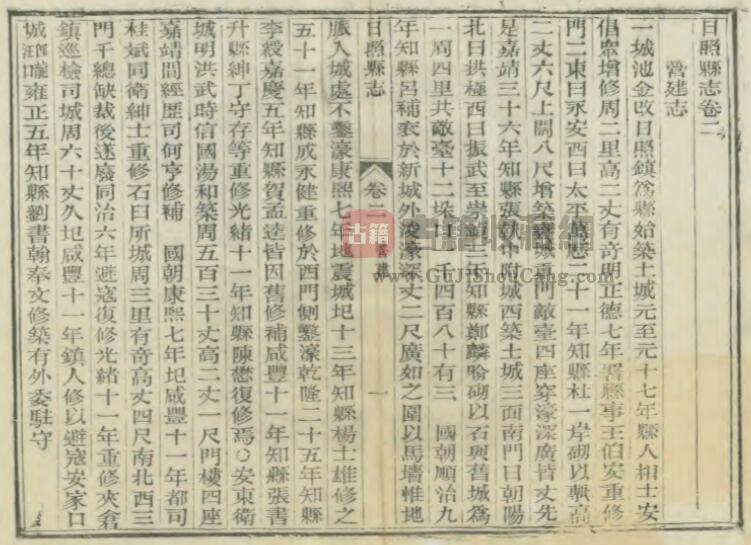 日照縣志卷二
營建志
一城池金改日照鎮爲縣始築土城元至元十七年縣人相士安
倡衆增修周二里高二丈有奇明正德七年署縣事王伯安重修
門二東曰永安西曰太平萬歷二十一年知縣杜一岸砌以甎高
二丈六尺上闊八尺增築甕城東門敵臺四座穿濠深廣皆丈先
是嘉靖三十六年知縣張執中附城西築土城三面南門曰朝陽
北曰拱極西曰振武至崇禎三年知縣鄭麟喻砌以石與舊城爲
一周四里共敵臺十二垜口一千四百八十有三 國朝順治九
年知縣呂補袞於新城外浚濠深丈二尺廣如之圍以馬墻惟地
日照縣志
卷二 營建
一
脈入城處不鑿濠康熙七年地震城圮十三年知縣楊士雄修之
五十一年知縣成永健重修於西門側鑿濠乾隆二十五年知縣
李綬嘉慶五年知縣賀孟逵皆因舊修補咸豐十一年知縣張書
升縣紳丁守存等重修光緒十一年知縣陳懋復修焉○安東衛
城明洪武時信國湯和築周五百三十丈高二丈一尺門樓四座
嘉靖間經歷司何亨修補 國朝康熙七年圮咸豐十一年都司
桂斌同衛紳士重修石臼所城周三里有奇高丈四尺南北西三
門千總缺裁後遂廢同治六年避寇復修光緒十一年重修夾倉
鎮巡檢司城周六十丈久圮咸豐十一年鎮人修以避寇安家口
城雍正五年知縣劉書翰奉文修築有外委駐守
古籍
www.GujiShouCang.com